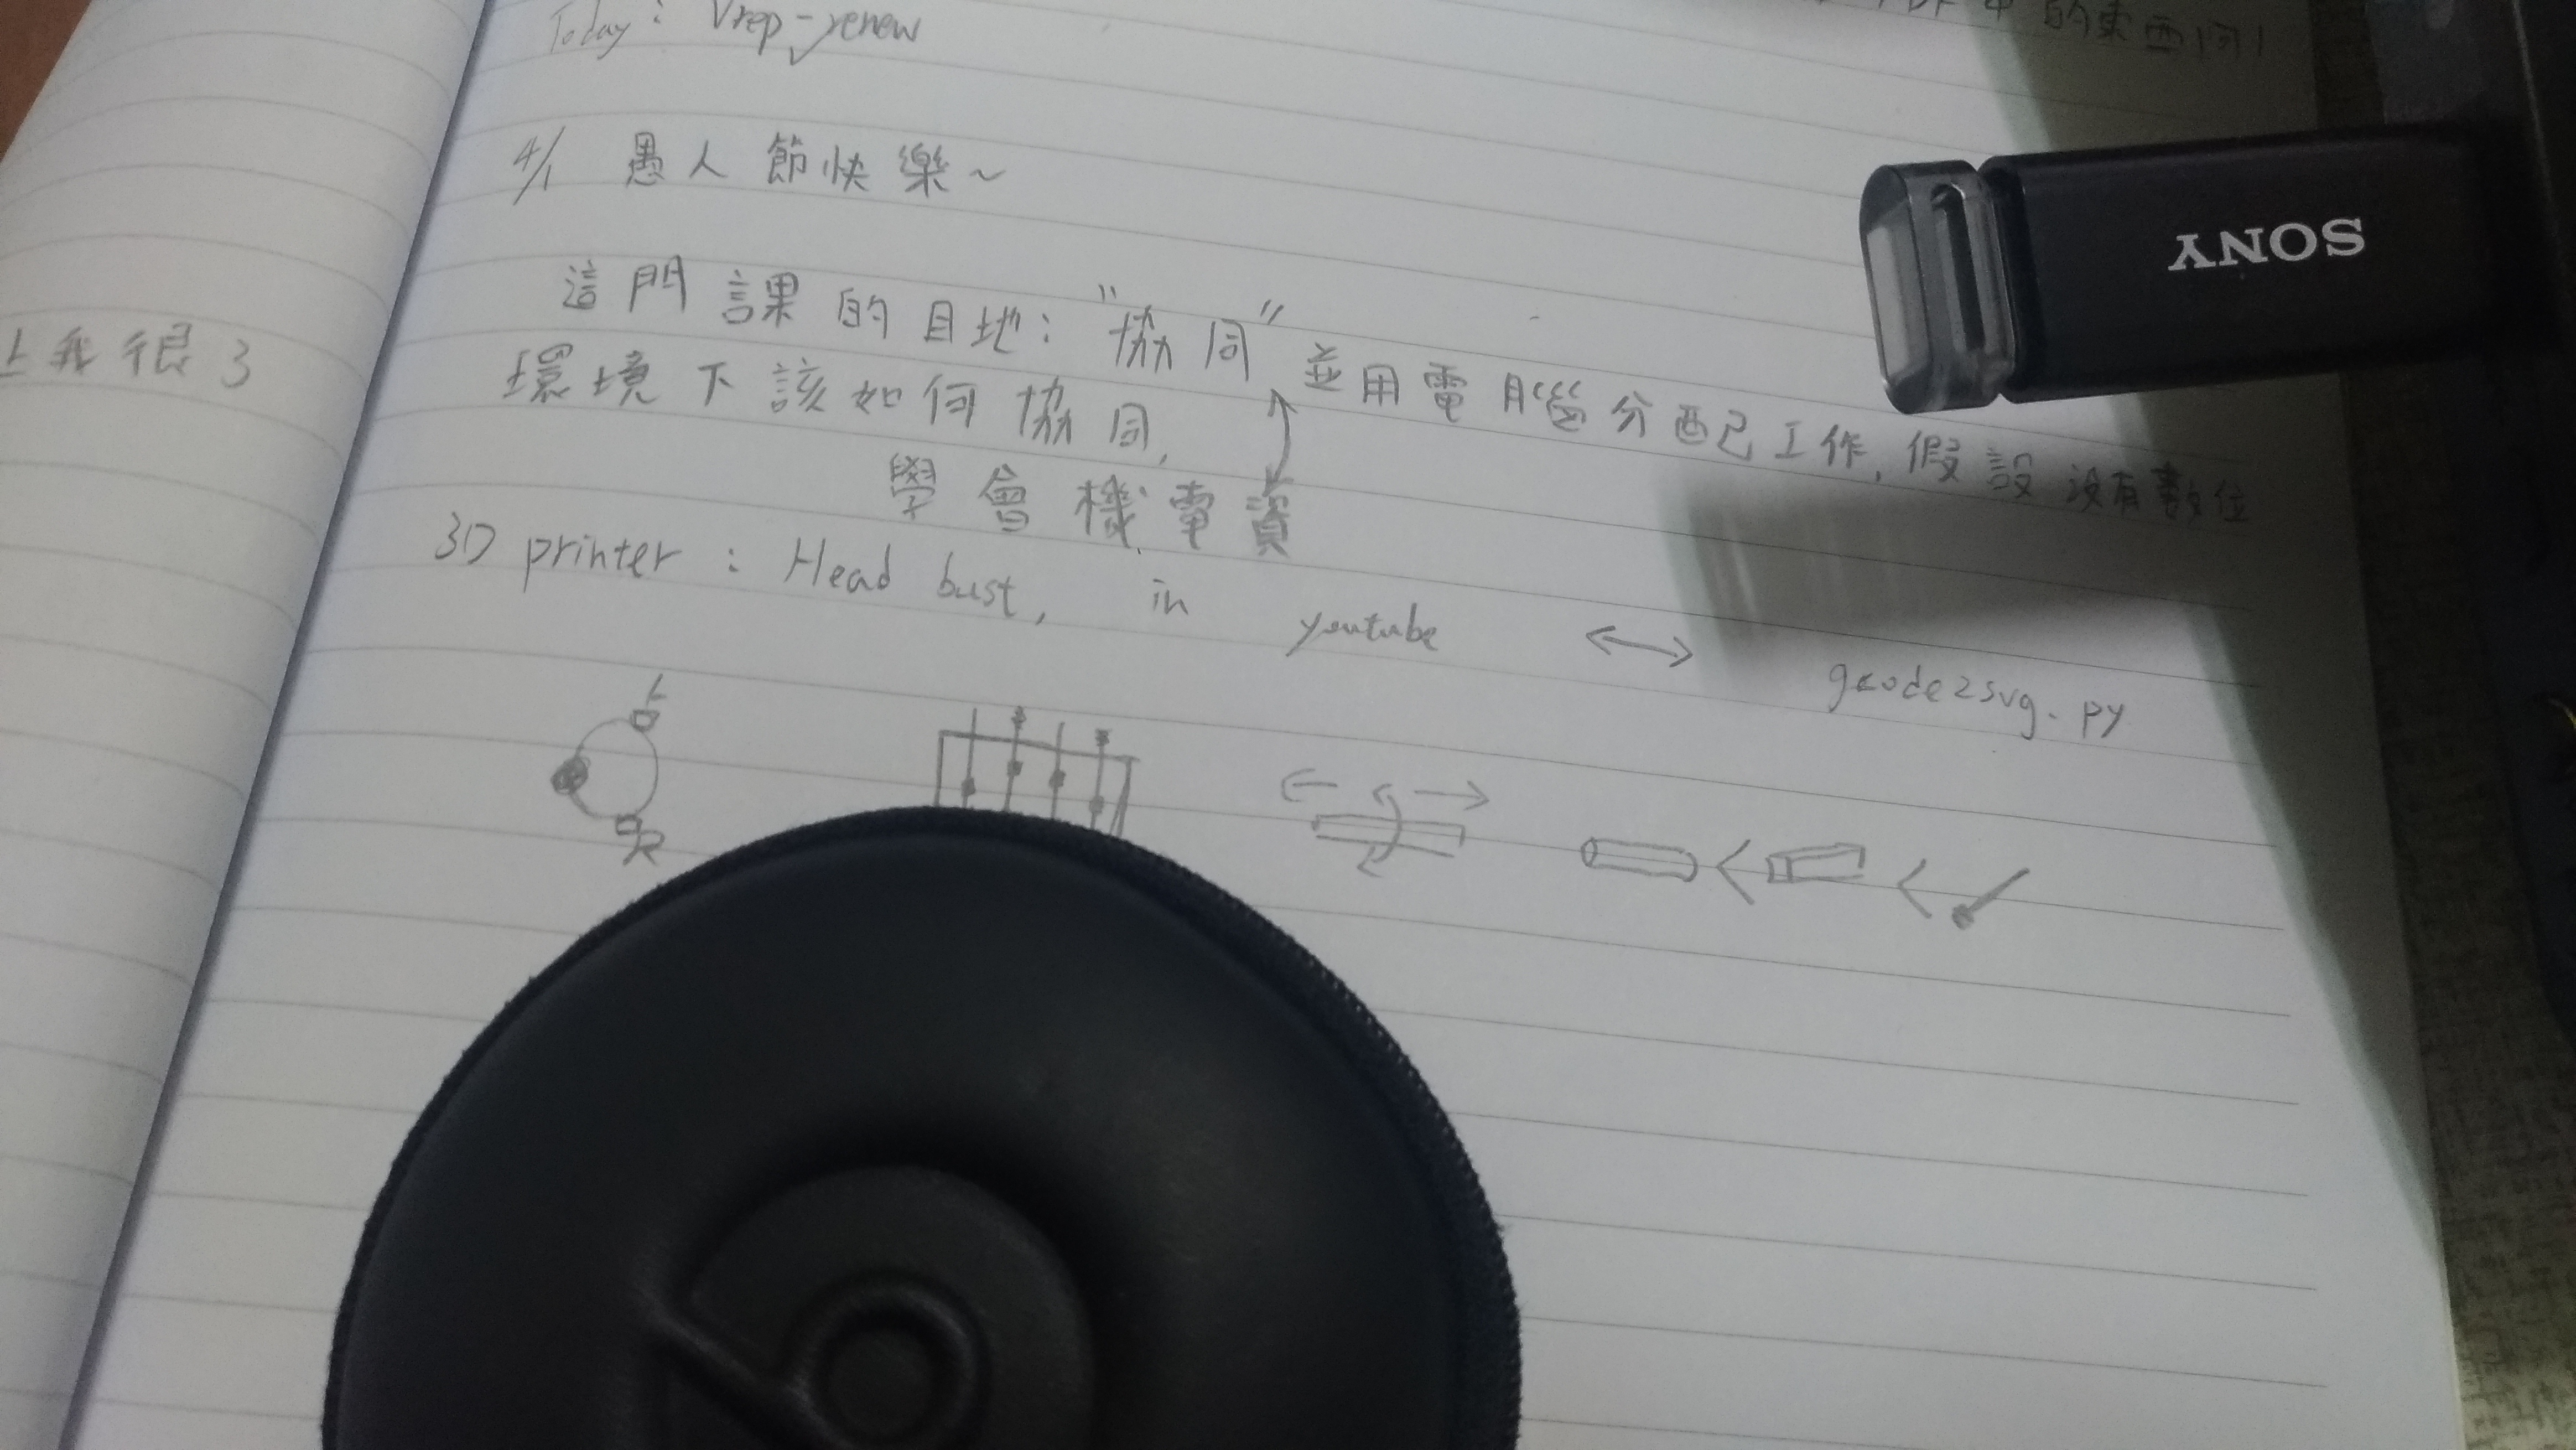 的東西
Today: Vrep-renew
4/1 愚人節快樂~
這門課的目地:"協同"並用電腦分配已工作,假設沒有數位
環境下該如何協同,
學會機電資
3D printer: Head bust, in youtube ↔ gcode2svg.py
我很3
SONY